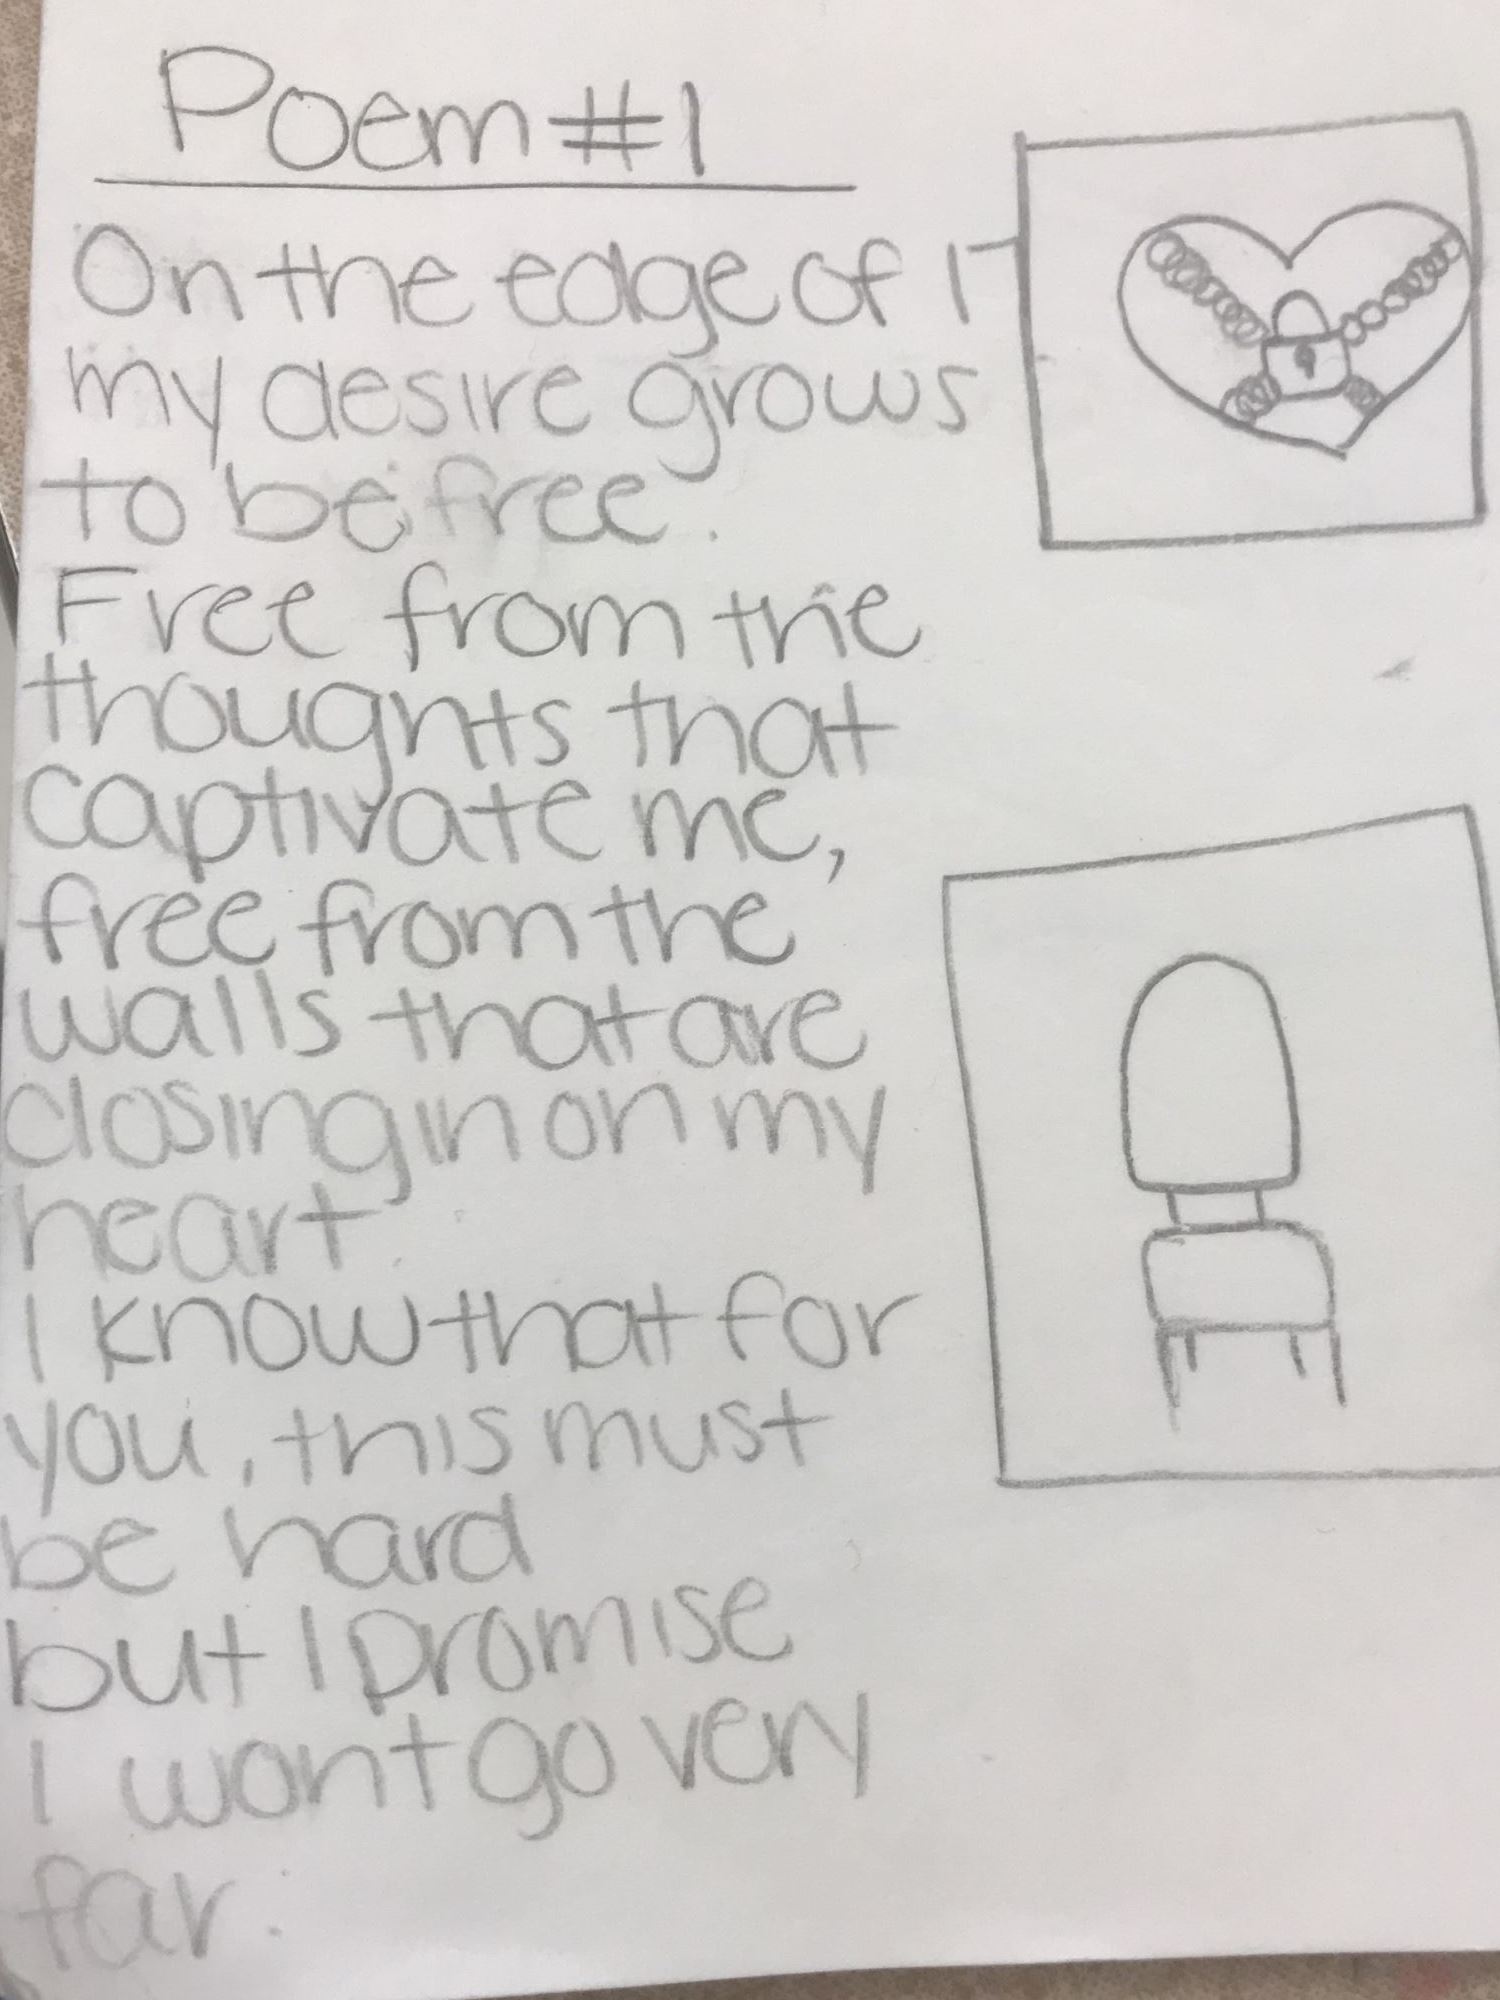 Poem #1
On the edge of 17
my desire grows
to be free.
Free from the
thoughts that
captivate me,
free from the
walls that are
closing in on my
heart.
I know that for
you, this must
be hard
but I promise
I wont go very
far.